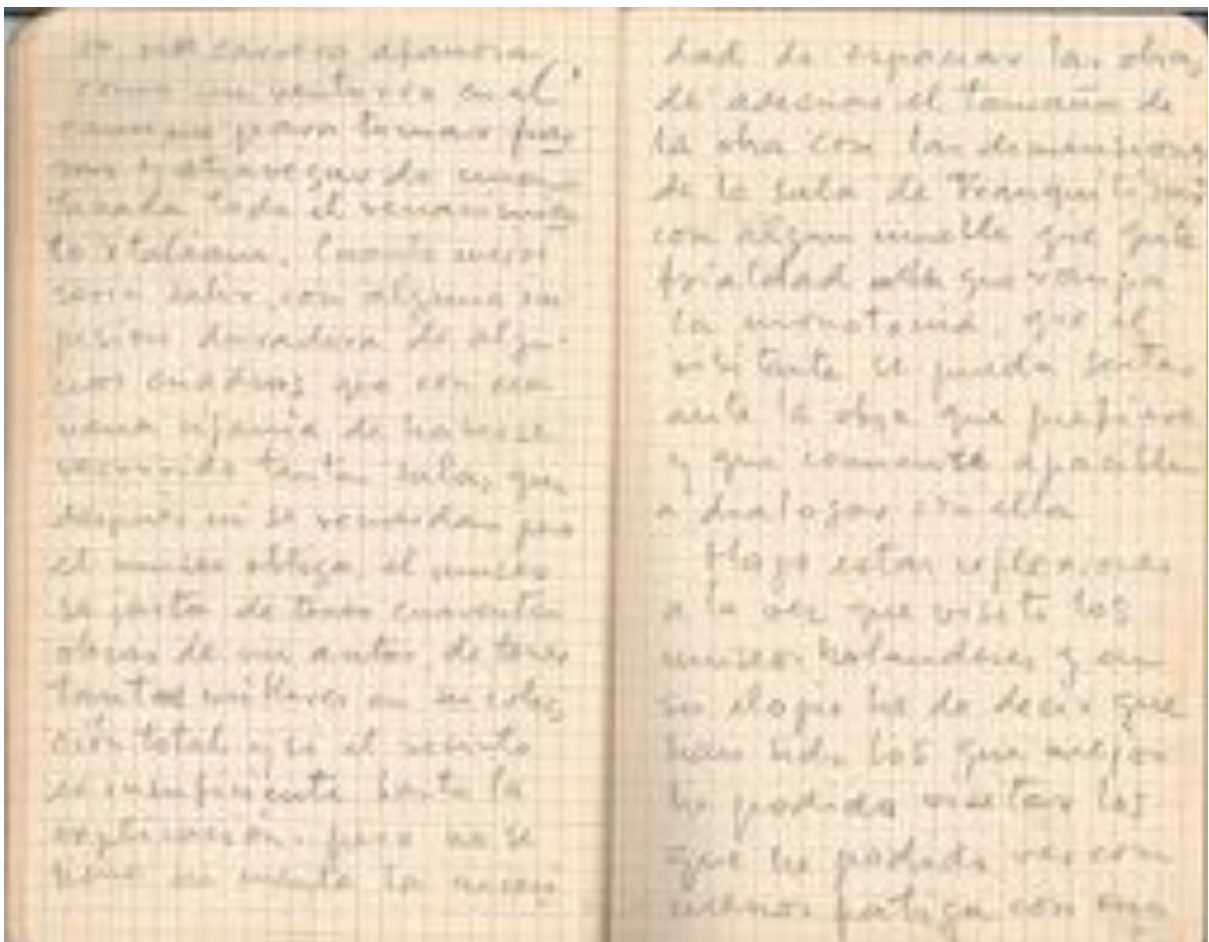 como un ventura en el
camino para tomar fue
y atravesar de una
tacada todo el renacimien
to italiano. Cuanto mejor
sería salir con alguna im
presión duradera de algu
nos cuadros que con esa
vana ufanía de haberse
recorrido tantas salas que
después ni se recuerdan pero
el museo obliga, el museo
se jacta de tener cuarenta
obras de un autor, de tener
tantos millares en su colec
ción total y si el recinto
es insuficiente hasta la
pero no se
tiene en cuenta la necesi
dad de espaciar las obras,
de adecuar el tamaño de
la obra con las dimensiones
de la sala de tranquilizar
con algun mueble que quite
frialdad que rompa
la monotonia, que el
visitante se pueda sentar
ante la obra que prefiere
y que comience apacible
a dialogar con ella
Hago estas reflexiones
a la vez que visito los
museos holandeses y en
su elogio he de decir que
han sido los que mejor
he podido visitar los
que he podido ver con
menos fatiga con